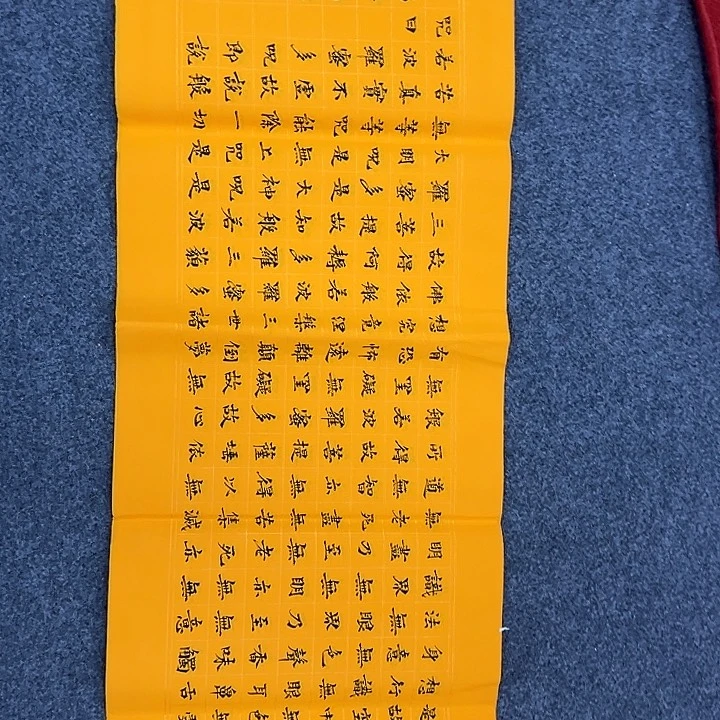 是故空中無色無受
想行識無眼耳鼻舌
身意無色聲香味觸
法無眼界乃至無意
識界無無明亦無無
明盡乃至無老死亦
無老死盡無苦集滅
道無智亦無得以無
所得故菩提薩埵依
般若波羅蜜多故心
無罣礙無罣礙故無
有恐怖遠離顛倒夢
想究竟涅槃三世諸
佛依般若波羅蜜多
故得阿耨多羅三藐
三菩提故知般若波
羅蜜多是大神呪是
大明呪是無上呪是
無等等呪能除一切
苦真實不虛故說般
若波羅蜜多呪即說
呪曰